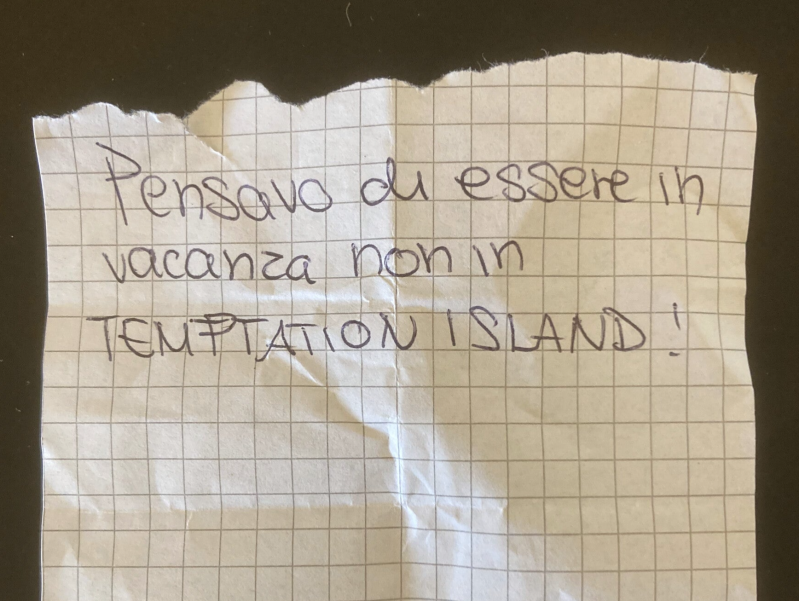 Pensavo di essere in
vacanza non in
TEMPTATION ISLAND!